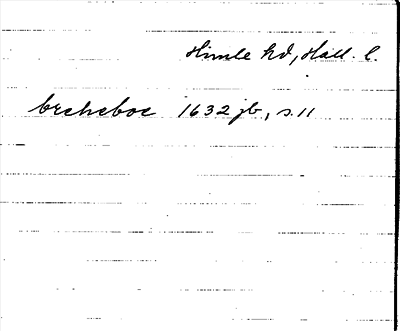 Himle hd, Hall. l.
breheboe 1632 jb, s. 11